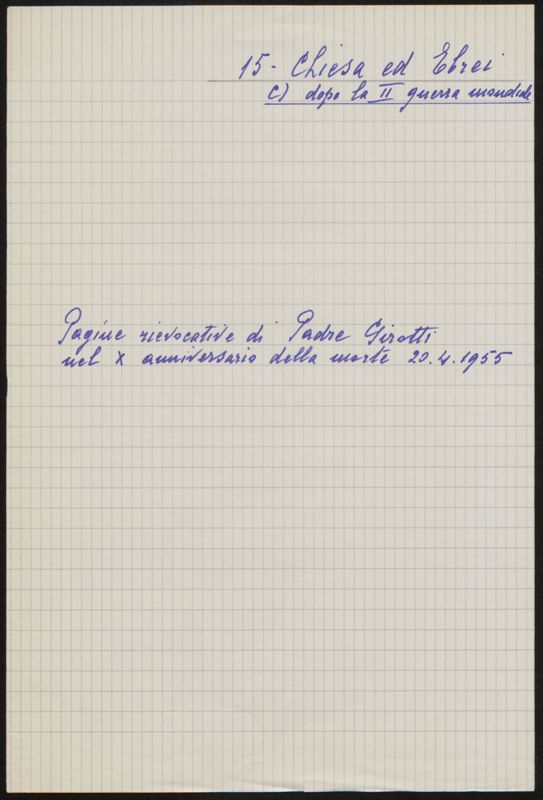 15- Chiesa ed Ebrei
c) dopo la II guerra mondiale
Pagine rievocative di Padre Girotti
nel X anniversario della morte 20.4.1955